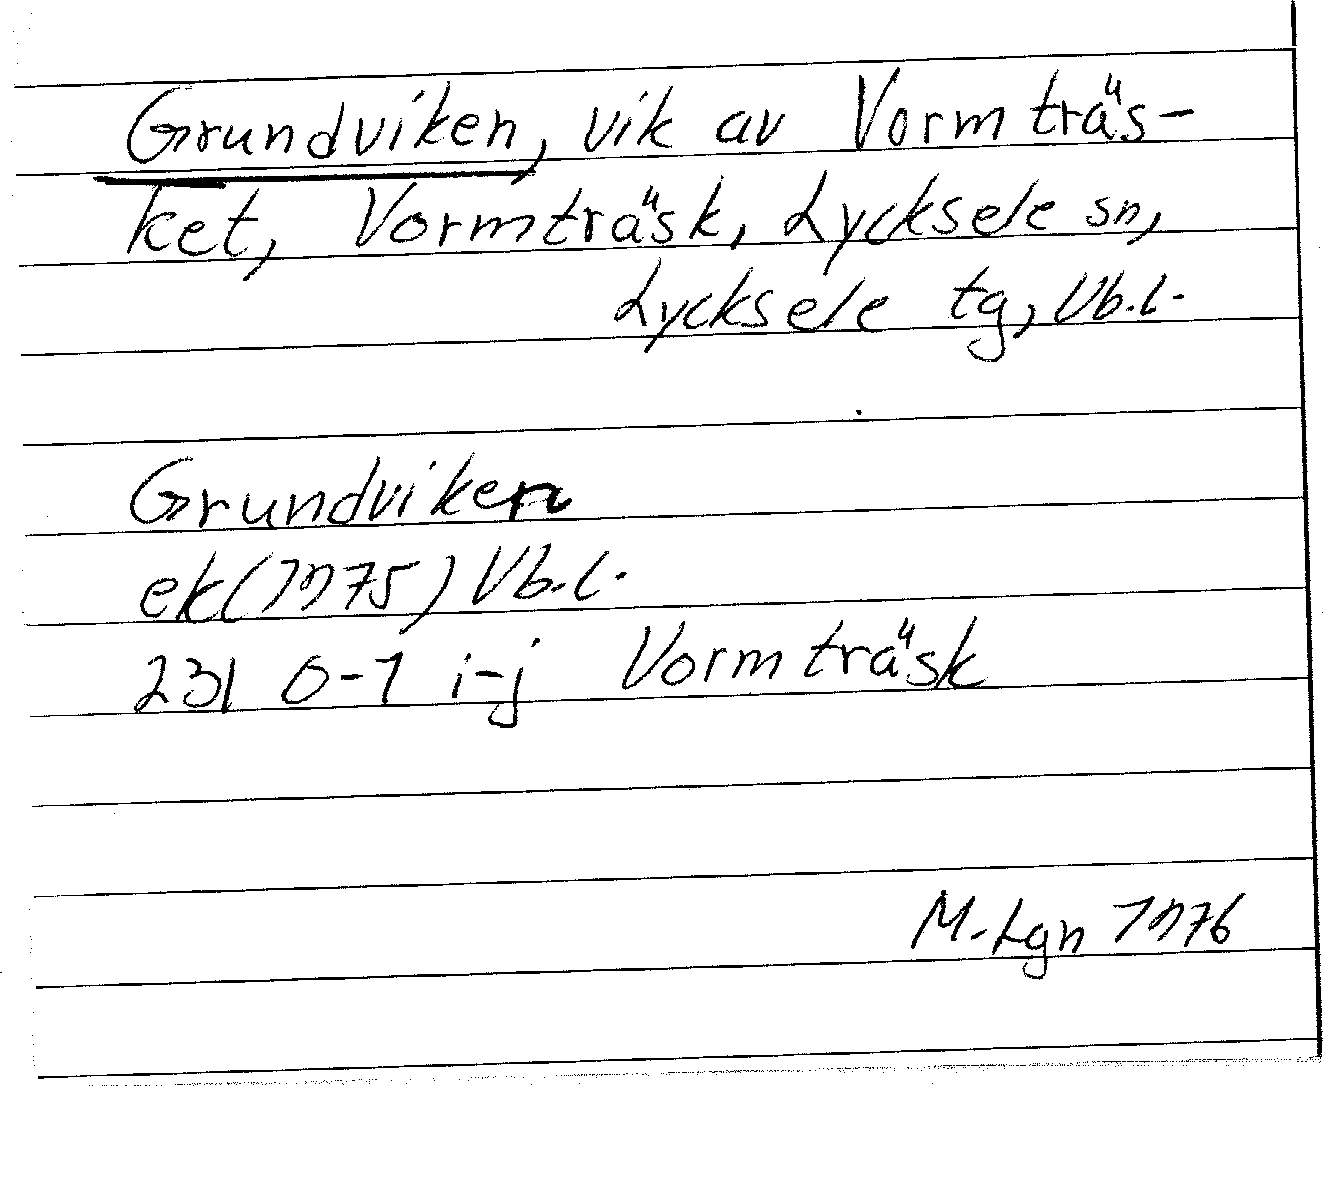 Grundviken, vik av Vormträs-
ket, Vormträsk, Lycksele sn,
Lycksele tg, Vb.l.
Grundviken
ek(1975) Vb.l.
231 0-1 i-j Vormträsk
M. Lgn 1976